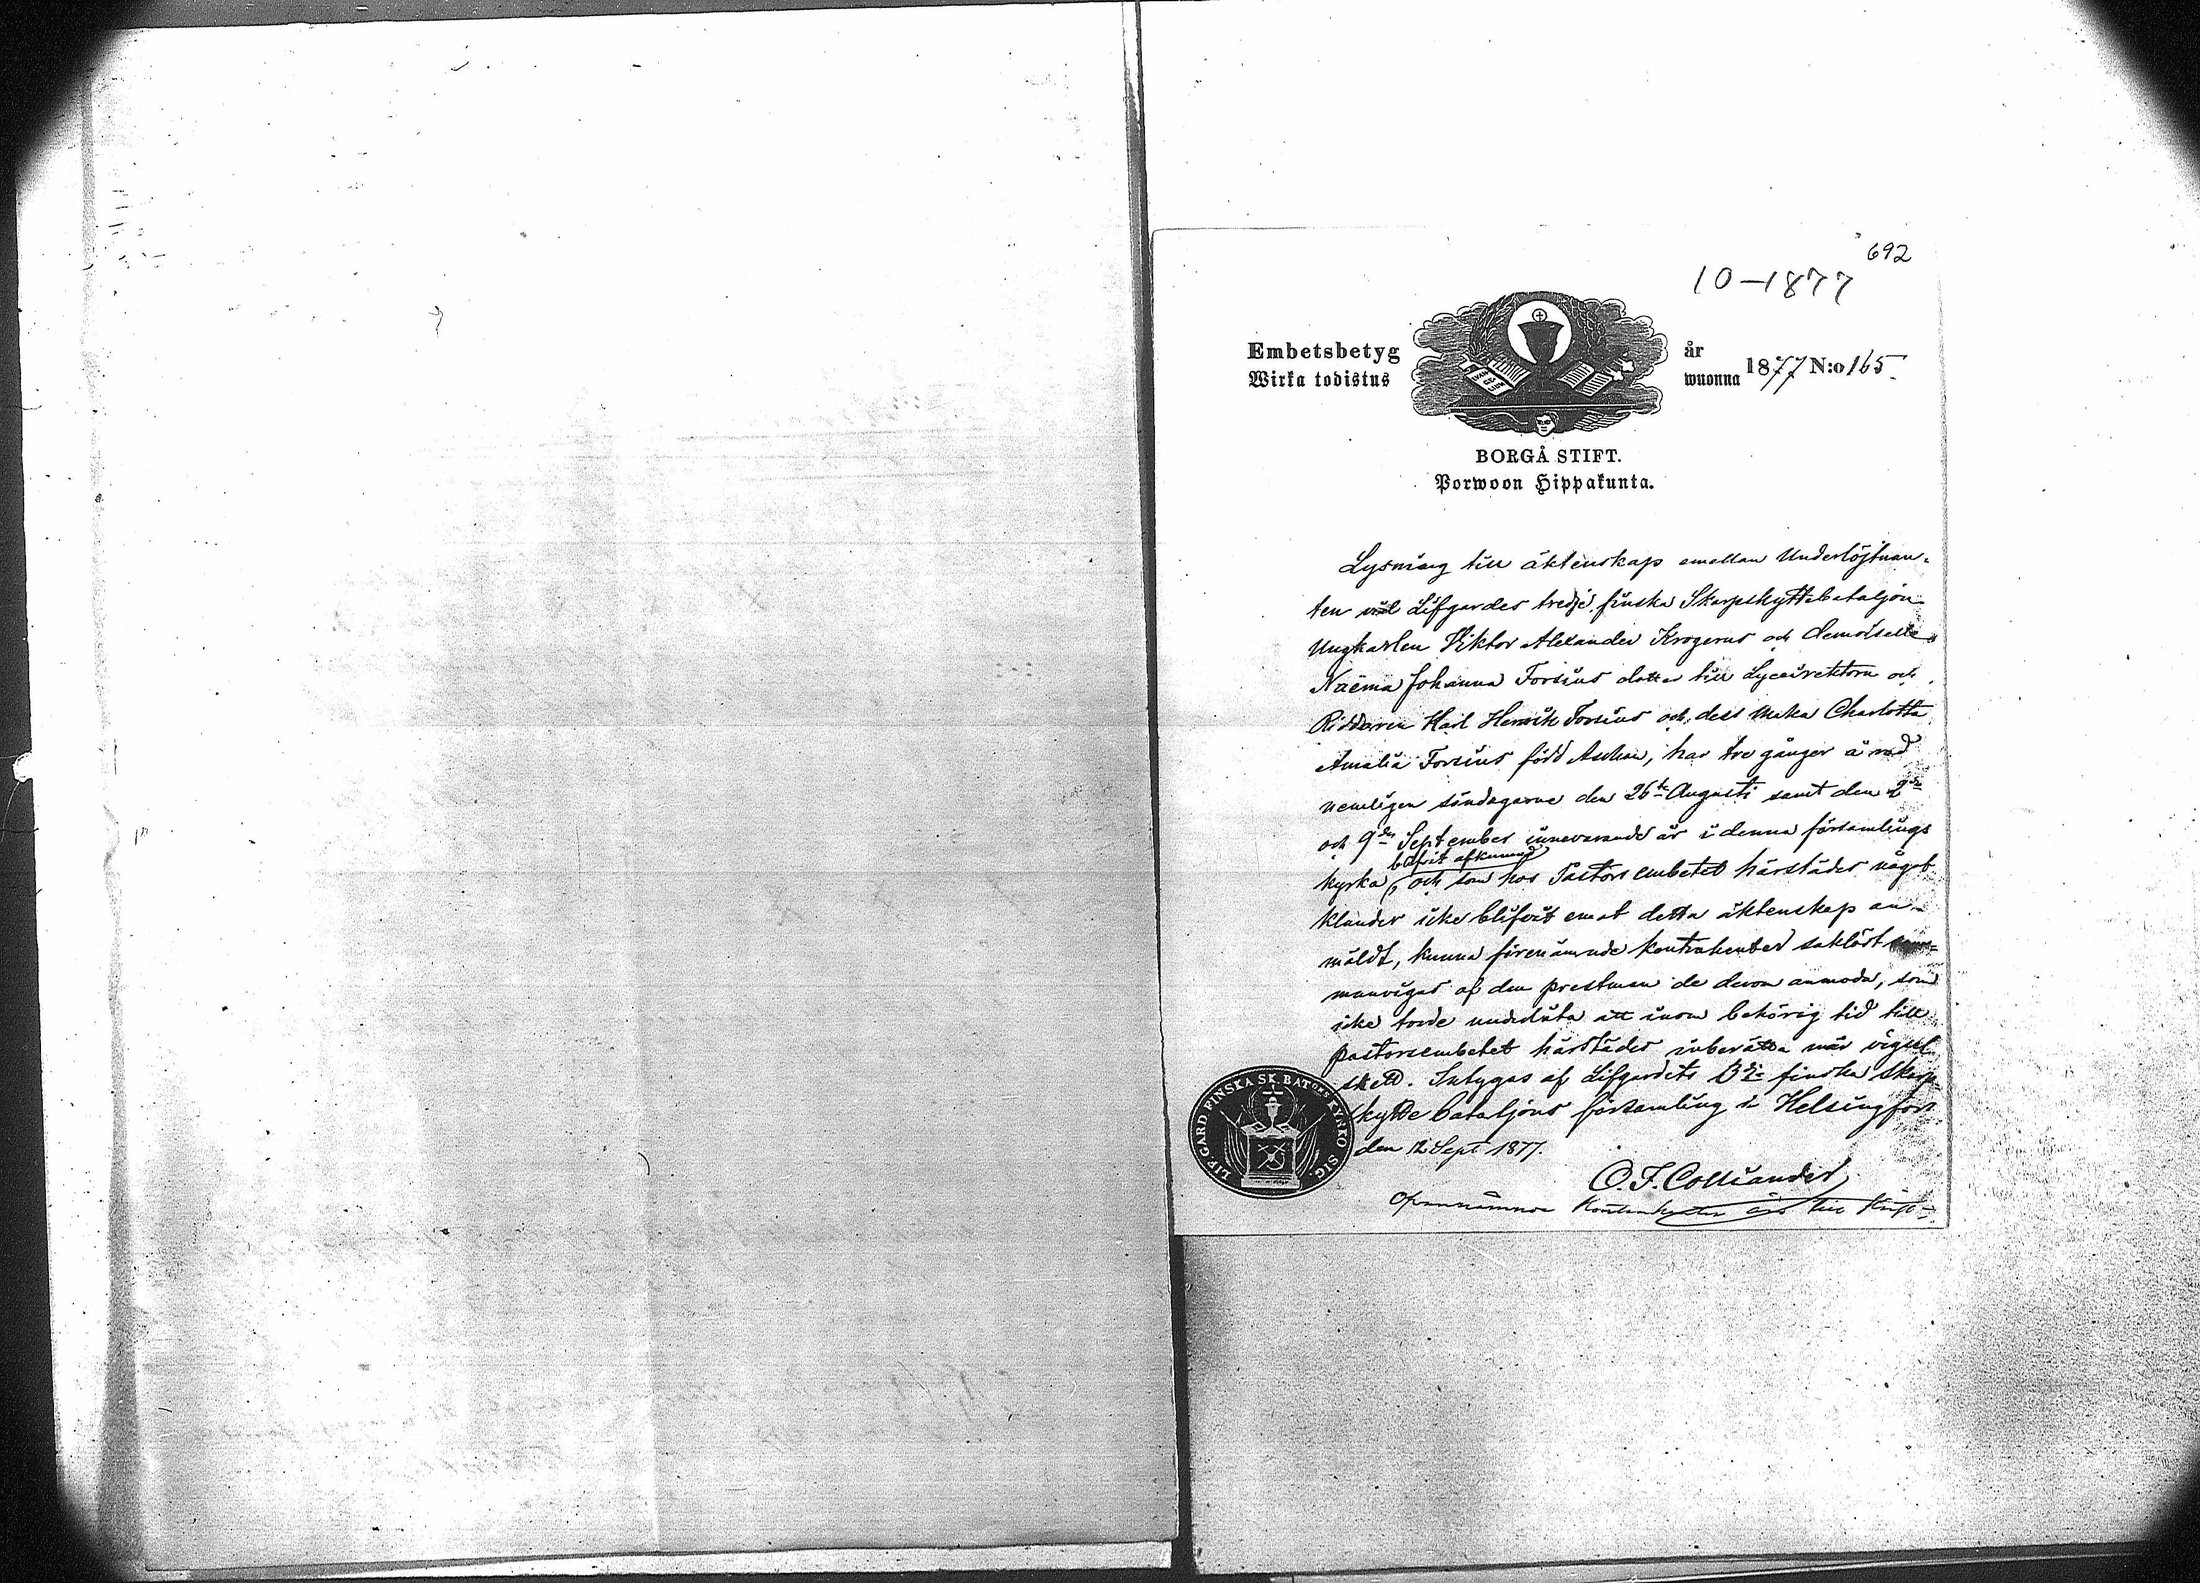 692
10-1877
Embetsbetyg
Wirka todistus
år
wuonna
1877 N:o 165.
EVAN
GE
LIUM
BORGÅ STIFT.
Porwoon Hippakunta.
Lysning till äktenskap emellan Underlöjtnan-
ten vid Lifgardes tredje finska Skarpskyttebataljon
Ungkarlen Viktor Alexander Krogerus och demoiselle
Naëma Johanna Forsius dotter till Lyceirektorn och
Riddaren Karl Henrik Forsius och dess maka Charlotta
Amalia Forsius född Aschan, har tre gånger å rad
nemligen söndagarne den 26te Augusti samt den 2dra
och 9de September innevarande år i denna församlings
blifvit afkunnad
kyrka, och som hos Pastorsembetet härstädes något
klander icke blifvit emot detta äktenskap an-
mäldt, kunna förenämnde kontrahenter saklöst
manvigas af den prestman de derom anmoda, som
icke torde underlåta att inom behörig tid till
pastorsembetet härstädes inberätta när vigsel
skett. Intygas af Lifgardets 3dje finska Skarp
skytte bataljons församling i Helsingfors
den 12 Sept 1877.
O. F. Colliander
Ofvannämnde Kontrahenter äro till
LIF. GARD FINSKA SK. BATONS KYRKO SIG.